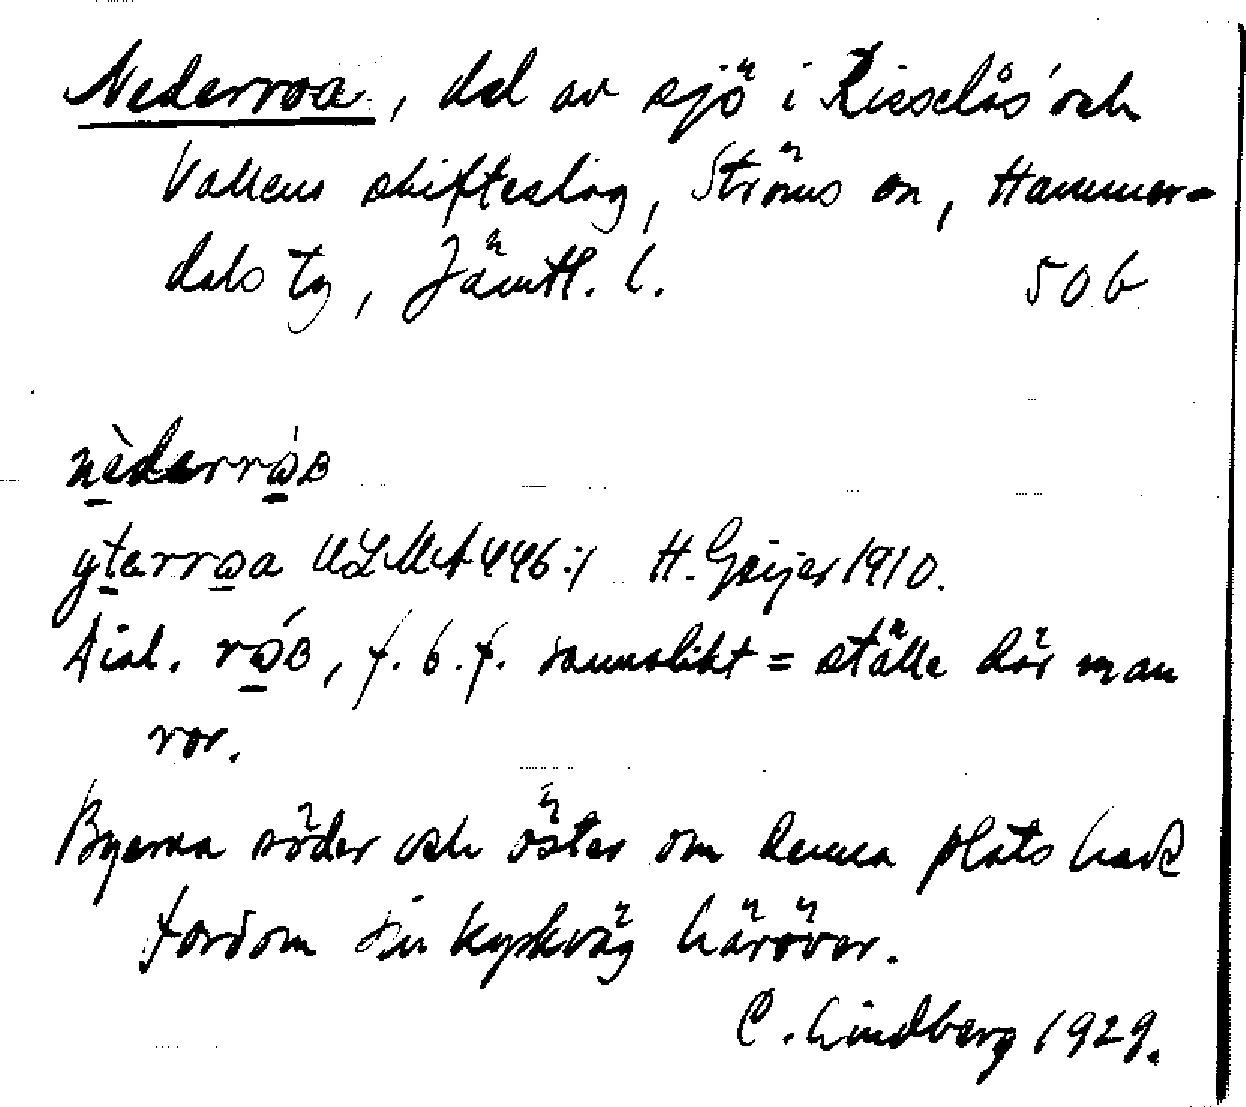 Nederroa, del av sjö i Risselås och
Vallens skifteslag, Ströms sn, Hammer-
dals tg, Jämtl. l. 50 b
nèderróɒ
yterroa ULMA 446:1 H. Geijer 1910.
Dial. róɒ, f. b. f. sannolikt = ställe där man
ror.
Byarna söder och öster om denna plats hade
fordom sin kyrkväg häröver.
C. Lindberg 1929.